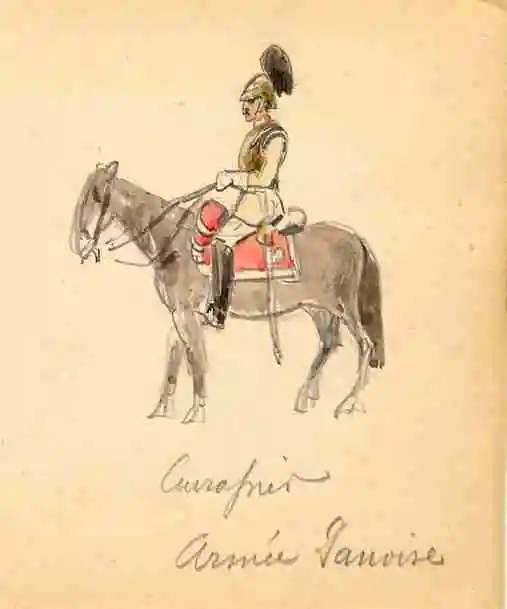 Cuirassier
Armée Danoise